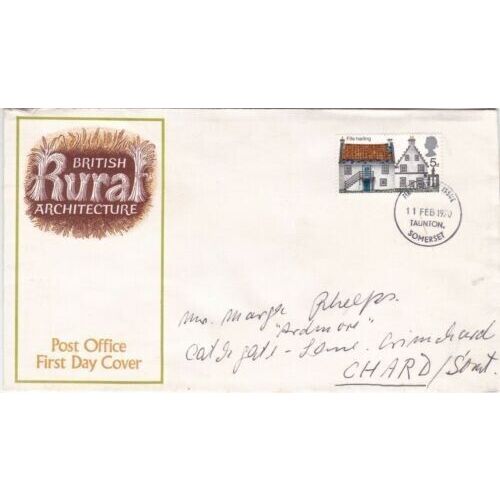 BRITISH
Rural
ARCHITECTURE
Post Office
First Day Cover
Fife harling
5d
11 FEB 1970
TAUNTON,
SOMERSET
Phelps.
"Ardmore"
gate - Lane. Crimchard
CHARD/Somt.